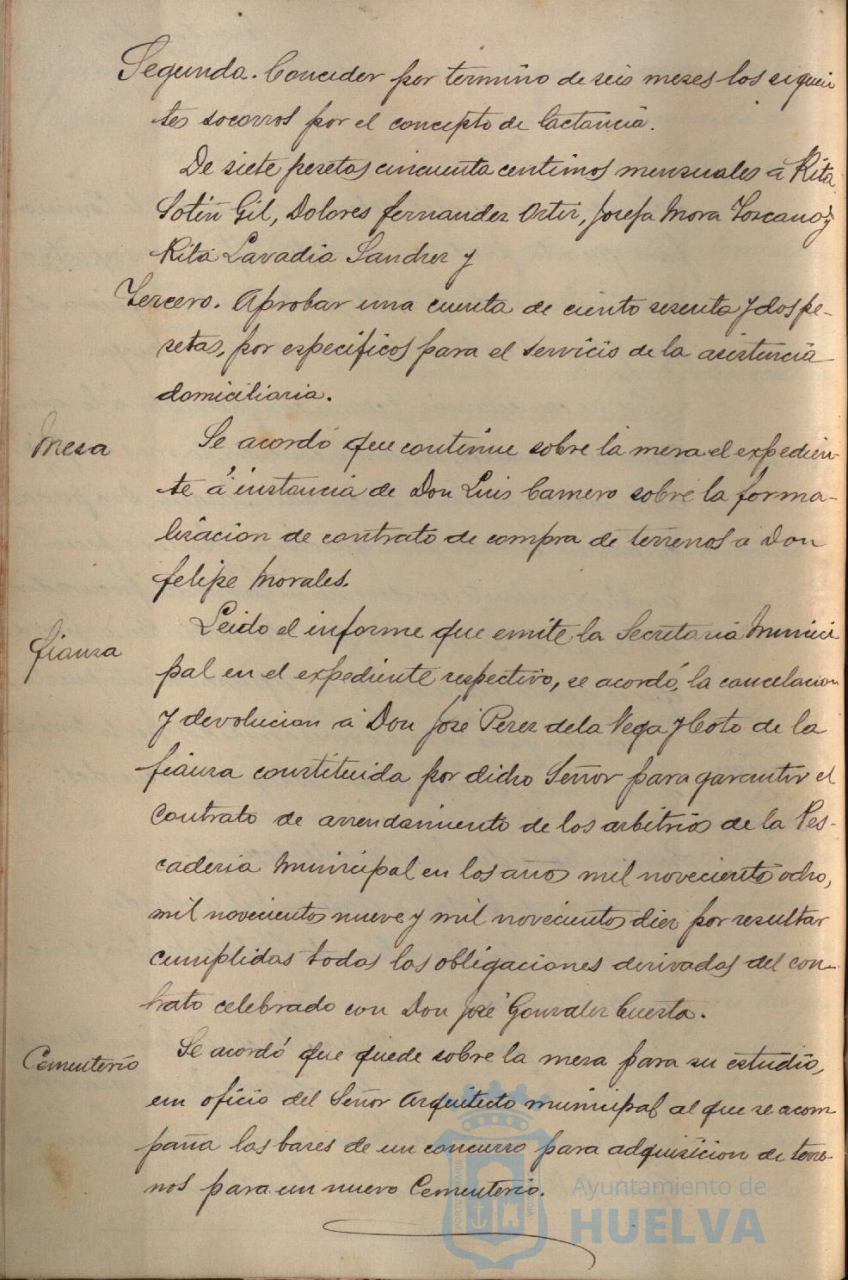 Segunda. Conceder por termino de seis meses los siguien
tes socorros por el concepto de lactancia.
De siete pesetas cincuenta centimos mensuales á Rita
Sotin Gil, Dolores Fernandez Ortiz, Josefa Mora Toscano y
Rita Lavadia Sanchez y
Tercero. Aprobar una cuenta de ciento sesenta y dos pe-
setas, por especificos para el servicio de la asistencia
domiciliaria.
Mesa
Se acordó que continue sobre la mesa el expedien-
te á instancia de Don Luis Camero sobre la forma-
lizacion de contrato de compra de terrenos á Don
Felipe Morales.
Fianza
Leido el informe que emite la Secretaria Munici
pal en el expediente respectivo, se acordó, la cancelacion
y devolucion á Don José Perez de la Vega y Coto de la
fianza constituida por dicho Señor para garantir el
contrato de arrendamiento de los arbitrios de la Pes-
caderia Municipal en los años mil novecientos ocho,
mil novecientos nueve y mil novecientos diez por resultar
cumplidas todas las obligaciones derivadas del con-
trato celebrado con Don José Gonzalez Cuesta.
Cementerio
Se acordó que quede sobre la mesa para su estudio,
un oficio del Señor Arquitecto municipal al que se acom
paña las bases de un concurso para adquisicion de terre-
nos para un nuevo Cementerio.
Ayuntamiento de
HUELVA